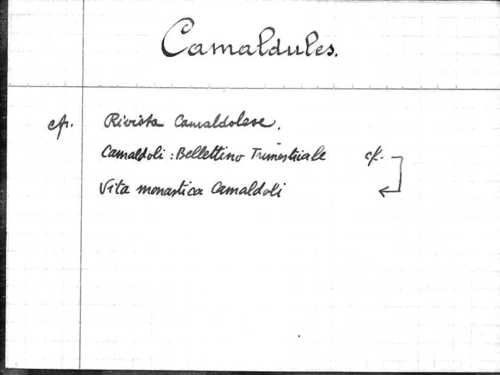 Camaldules.
cfr. Rivista Camaldolese.
Camaldoli : Bollettino Trimestriale cf.
Vita monastica Camaldoli